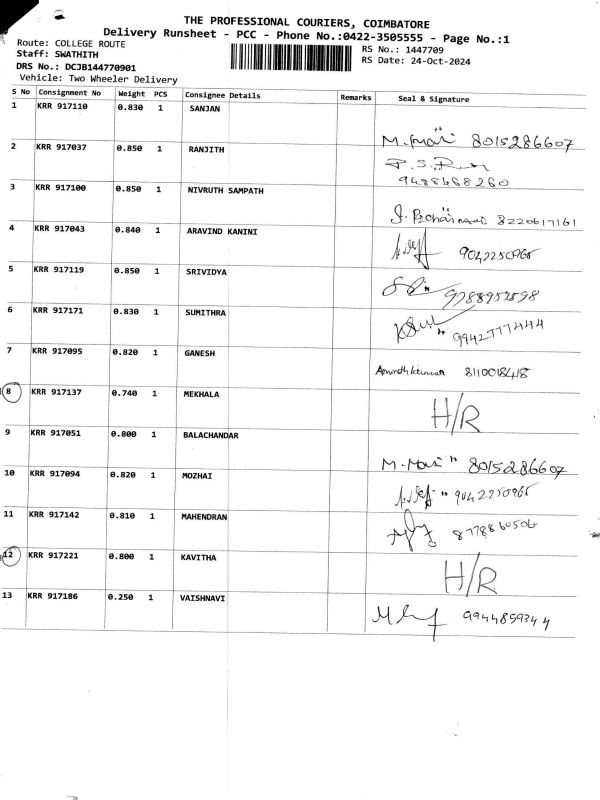 THE PROFESSIONAL COURIERS, COIMBATORE
Delivery Runsheet - PCC - Phone No.:0422-3505555 - Page No.:1
Route: COLLEGE ROUTE
Staff: SWATHITH
DRS No.: DCJB144770901
Vehicle: Two Wheeler Delivery
RS No.: 1447709
RS Date: 24-Oct-2024
S No Consignment No Weight PCS Consignee Details Remarks Seal & Signature
1 KRR 917110 0.830 1 SANJAN 8015286607
2 KRR 917037 0.850 1 RANJITH 9488468260
3 KRR 917100 0.850 1 NIVRUTH SAMPATH 8220617161
4 KRR 917043 0.840 1 ARAVIND KANINI 9042250965
5 KRR 917119 0.850 1 SRIVIDYA
6 KRR 917171 0.830 1 SUMITHRA 9942777444
7 KRR 917095 0.820 1 GANESH 8110018418
8 KRR 917137 0.740 1 MEKHALA H/R
9 KRR 917051 0.800 1 BALACHANDAR 8015286607
10 KRR 917094 0.820 1 MOZHAI 9042250965
11 KRR 917142 0.810 1 MAHENDRAN 8778860506
12 KRR 917221 0.800 1 KAVITHA H/R
13 KRR 917186 0.250 1 VAISHNAVI 9944859344